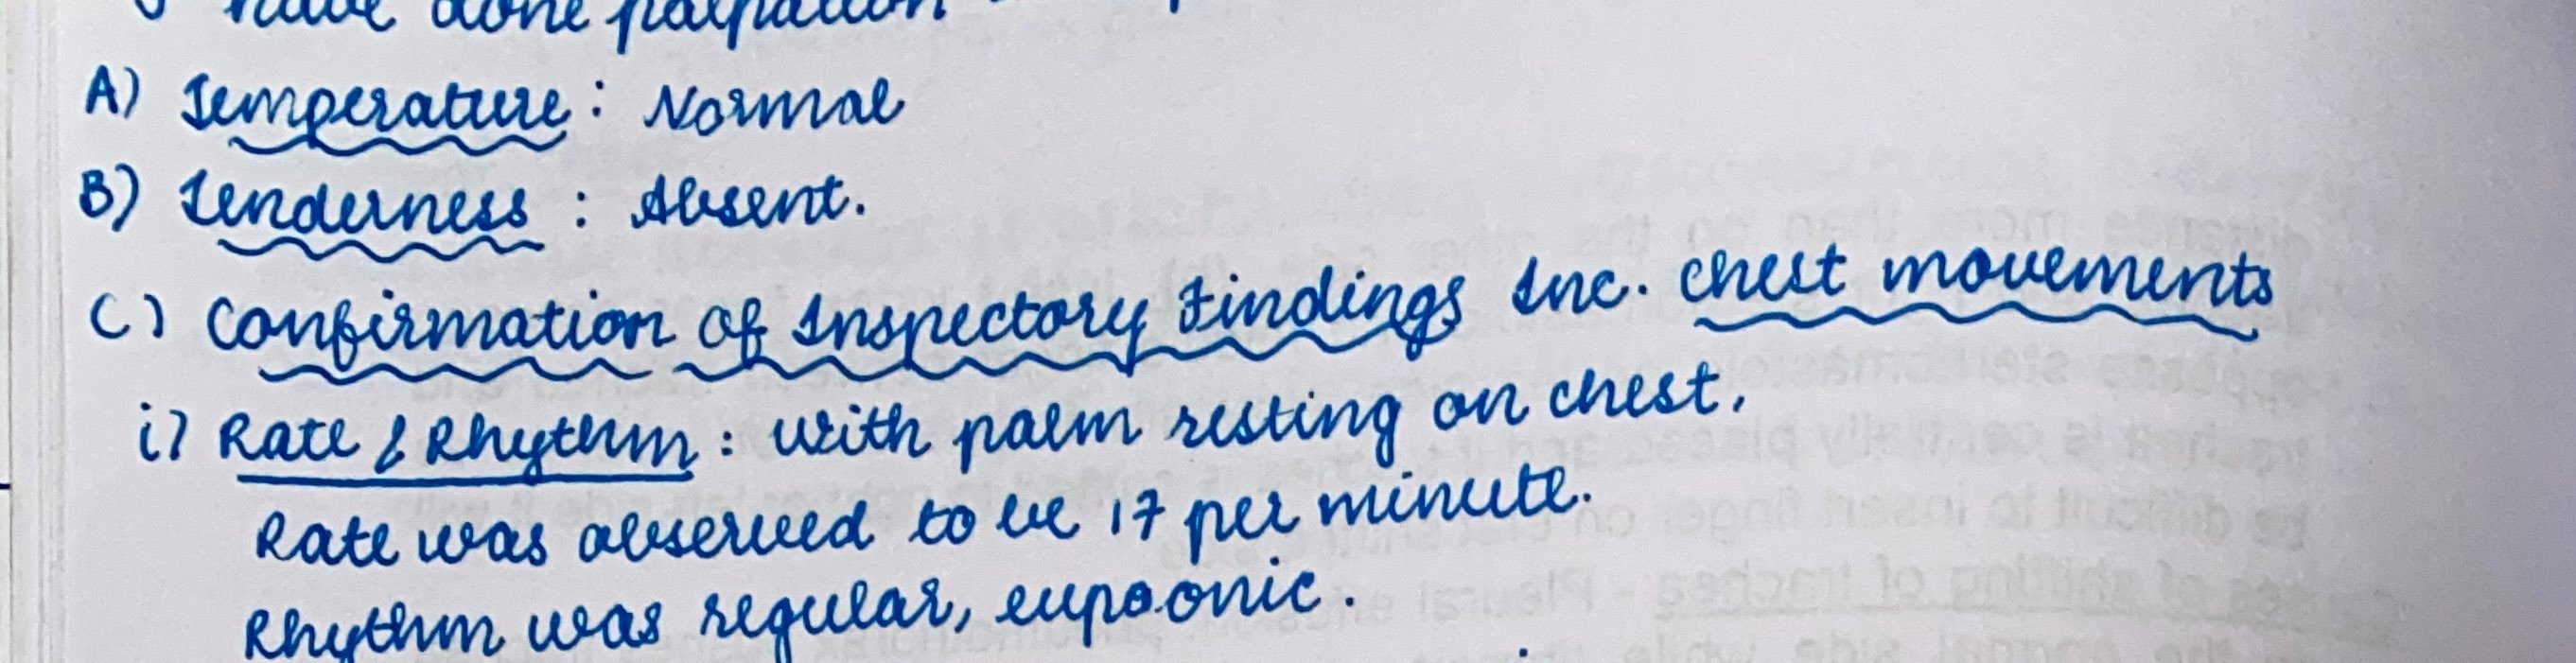 have done palpation
A) Temperature : Normal
B) Tenderness : Absent.
C) Confirmation of Inspectory Findings Inc. chest movements
i) Rate & Rhythm : With palm resting on chest,
Rate was observed to be 17 per minute.
Rhythm was regular, eupoonic.